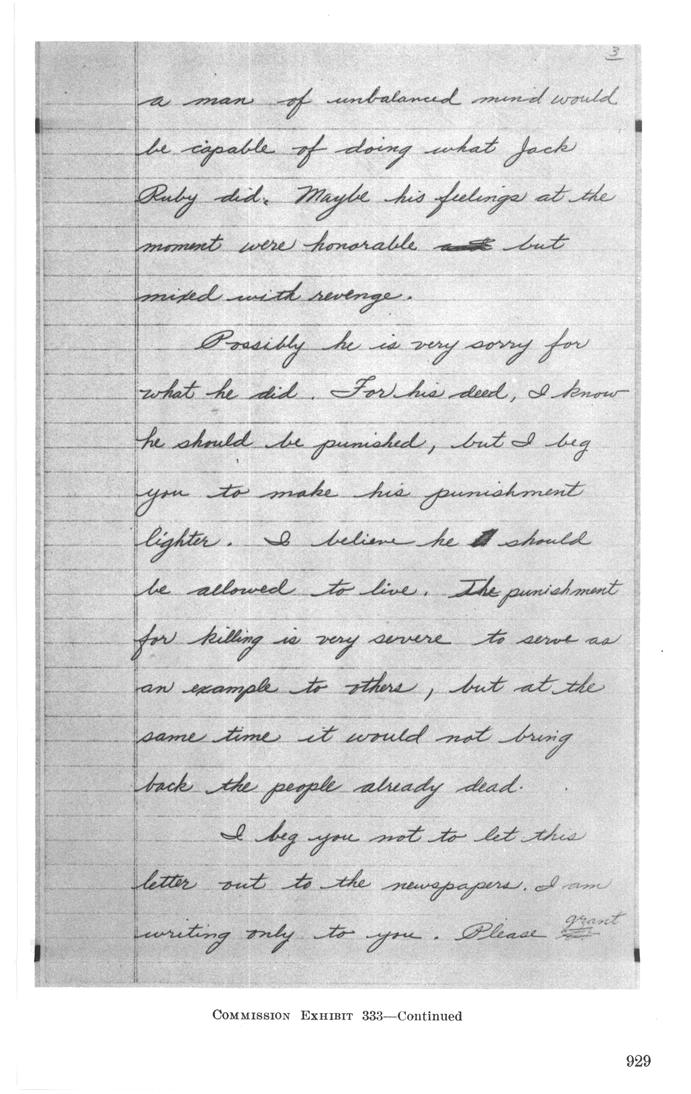 3
a man of unbalanced mind would
be capable of doing what Jack
Ruby did. Maybe his feelings at the
moment were honorable but
mixed with revenge.
Possibly he is very sorry for
what he did. For his deed, I know
he should be punished, but I beg
you to make his punishment
lighter. I believe he should
be allowed to live. The punishment
for killing is very severe to serve as
an example to others, but at the
same time it would not bring
back the people already dead.
I beg you not to let this
letter out to the newspapers. I am
writing only to you. Please grant
COMMISSION EXHIBIT 333—Continued
929